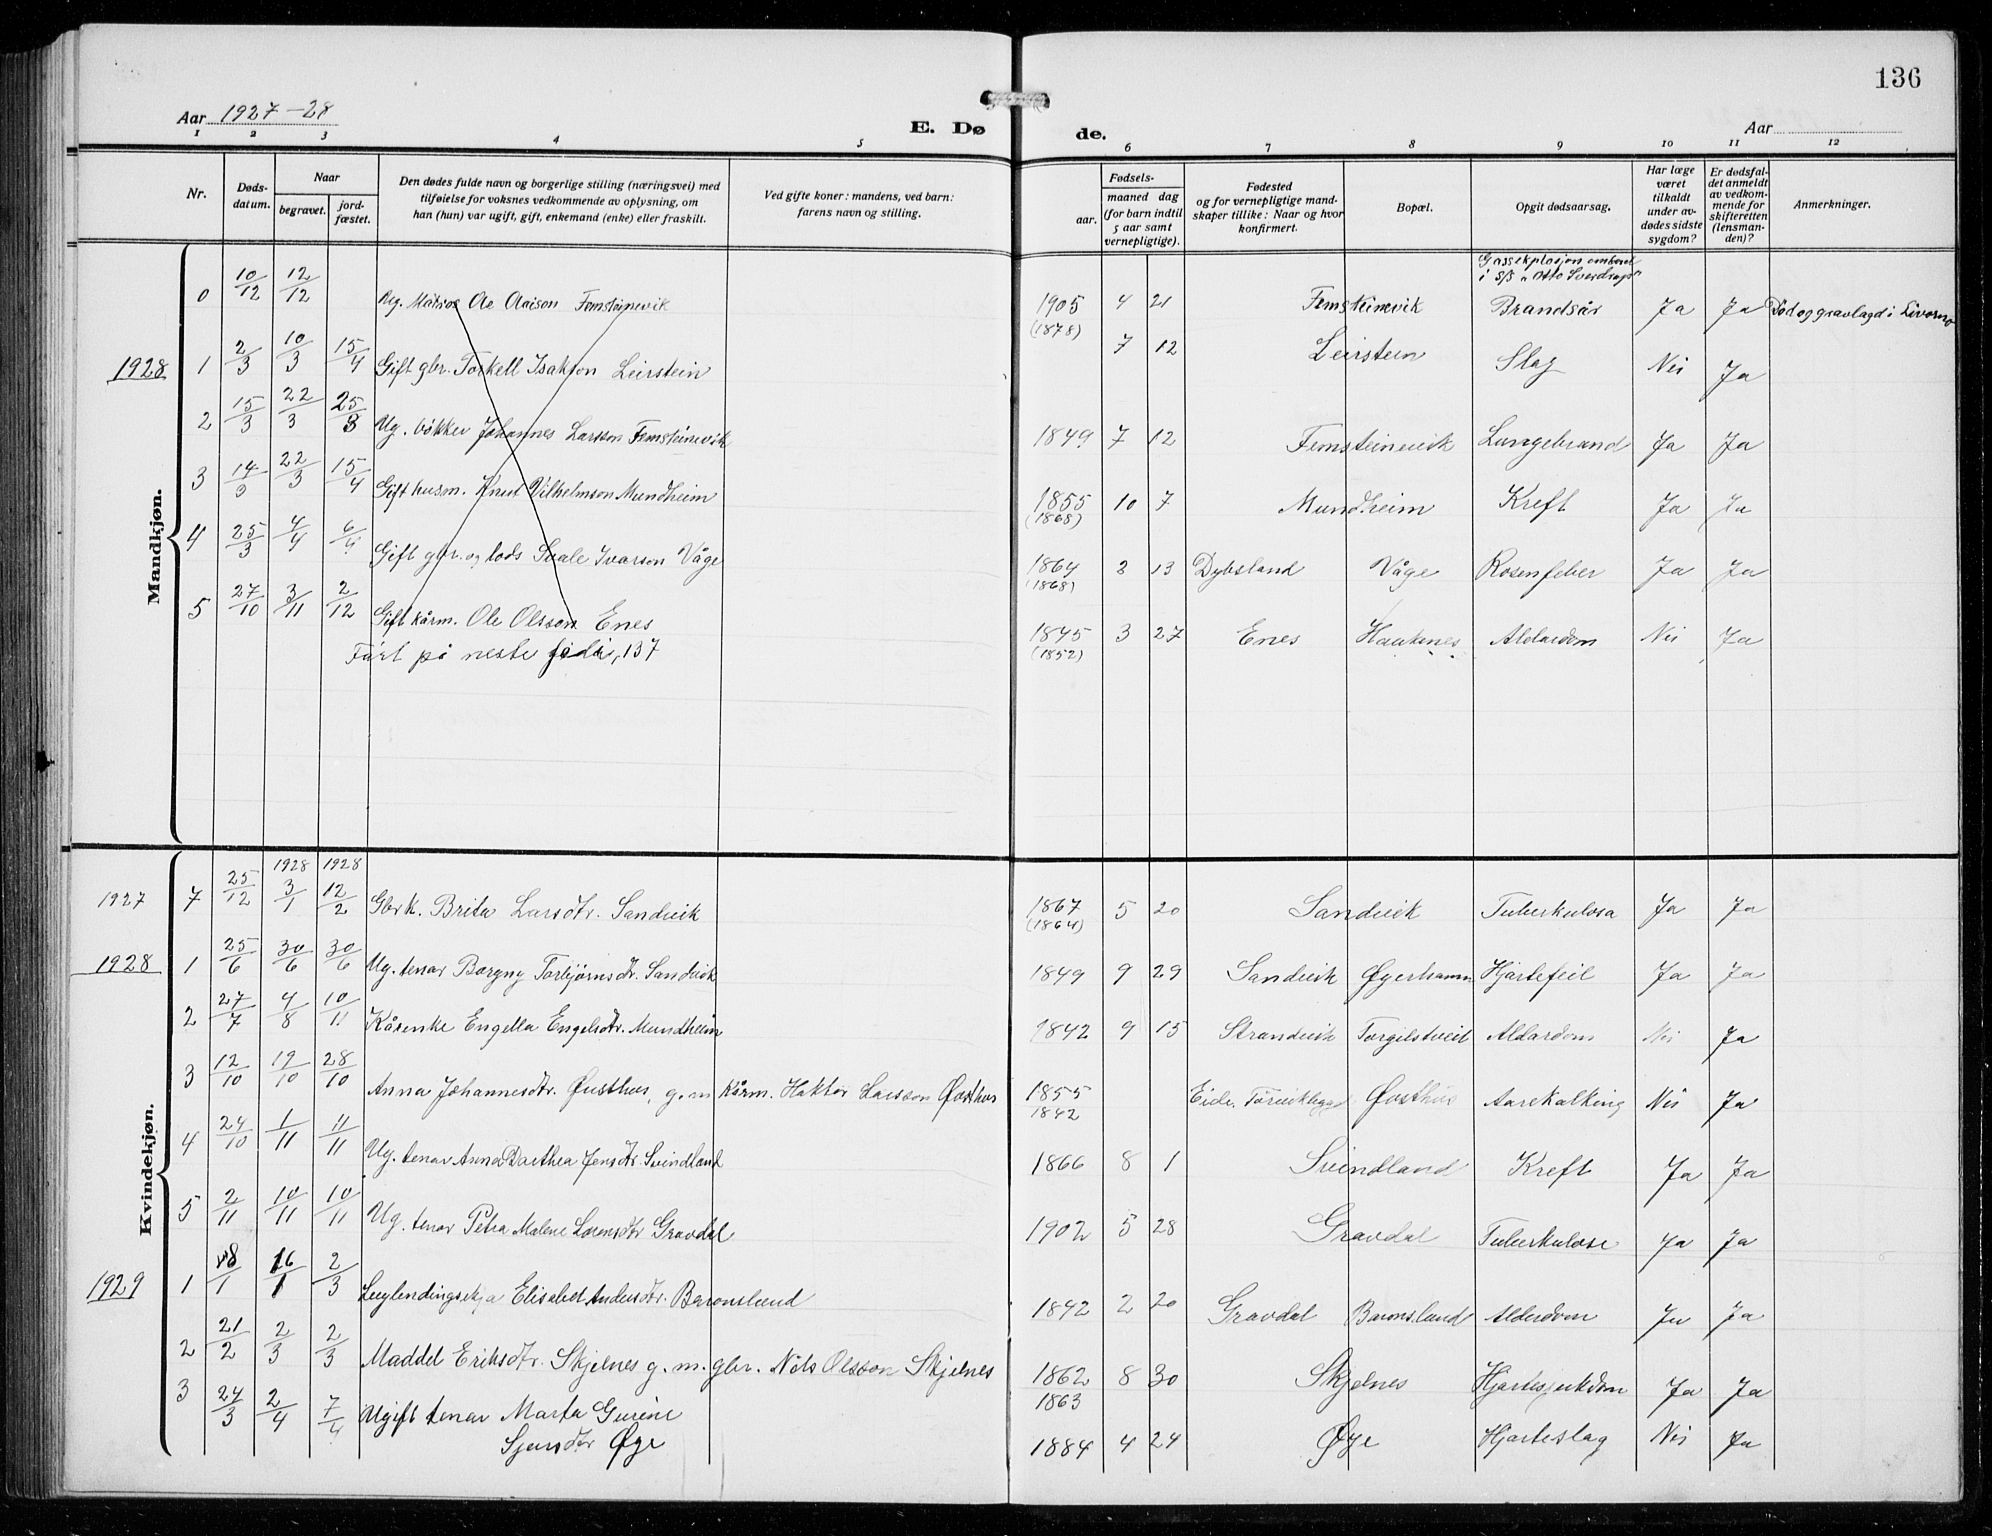 136
Aar 1927-28
E. Dø de.
Aar
1 2 3 4 5 6 7 8 9 10 11 12
Nr.
Døds-datum.
Naar
begravet.
jord-fæstet.
Den dødes fulde navn og borgerlige stilling (næringsvei) med
tilføielse for voksnes vedkommende av oplysning, om
han (hun) var ugift, gift, enkemand (enke) eller fraskilt.
Ved gifte koner: mandens, ved barn:
farens navn og stilling.
Fødsels-
aar.
maaned dag
(for barn indtil
5 aar samt
vernepligtige).
Fødested
og for vernepligtige mand-
skaper tillike: Naar og hvor
konfirmert.
Bopæl.
Opgit dødsaarsag.
Har læge
været
tilkaldt
under av-
dødes sidste
sygdom?
Er dødsfal-
det anmeldt
av vedkom-
mende for
skifteretten
(lensman-
den)?
Anmerkninger.
Mandkjøn.
Gassexplosjon ombord
i S/S "Otto Sverdrup"
0 10/12 12/12 Ug. Matros Ole Olaison Femsteinevik 1905 4 21 Femsteinevik Brandsår Ja Ja Død og gravlagd i Livorno
1928 1 2/3 10/3 15/4 Gift gbr. Torkell Isakson Leirstein (1878) 7 12 Leirstein Slag Nei Ja
2 15/3 22/3 25/3 Ug. bøkker Johannes Larsson Femsteinevik 1849 7 12 Femsteinevik Lungebrand Ja Ja
3 14/3 22/3 15/4 Gift husm. Knut Vilhelmson Mundheim 1855 (1868) 10 7 Mundheim Kreft Ja Ja
4 25/3 4/4 6/4 Gift gbr. og lods Svale Ivarson Våge 1864 (1868) 3 13 Dybsland Våge Rosenfeber Ja Ja
5 27/10 3/11 2/12 Gift kårm. Ole Olsson Enes 1845 (1852) 3 27 Enes Haukenes Aldardom Nei Ja
Ført på neste side, 137
Kvindekjøn.
1928 1928
1927 7 25/12 3/1 12/2 Gbrk. Brita Larsdtr. Sandvik 1867 (1864) 5 20 Sandvik Tuberkulosa Ja Ja
1928 1 25/6 30/6 30/6 Ug. tenar Borgny Torbjørnsdtr. Sandvik 1849 9 29 Sandvik Øyerhamn Hjartefeil Ja Ja
2 27/7 4/8 10/11 Kårenke Engella Engelsdtr. Mundheim 1842 9 15 Strandvik Torgilstveit Aldardom Nei Ja
3 12/10 19/10 28/10 Anna Johannesdtr. Øusthus, g. m. Kårm. Haktor Larsson Øusthus 1855 1842 Eide, Øusthus Aarekalking Nei Ja
4 24/10 1/11 11/11 Ug. tenar Anna Dorthea Jensdtr. Svindland 1866 8 1 Svindland Kreft Ja Ja
5 2/11 10/11 10/11 Ug. tenar Petra Malene Lorensdtr Gravdal 1902 5 28 Gravdal Tuberkulose Ja Ja
1929 1 8/1 16/1 2/3 Elisabet Andersdtr. Baronsland 1842 2 20 Gravdal Baronsland Alderdom Ja Ja
2 21/2 2/3 2/3 Maddel Eriksdtr. Skjelnes g. m. gbr. Nils Olsson Skjelnes 1862 1863 8 30 Skjelnes Hjartesjukdom Ja Ja
3 24/3 2/4 7/4 Ugift tenar Marta Gurine
Sjursdtr Øye 1884 4 24 Øye Hjarteslag Nei Ja